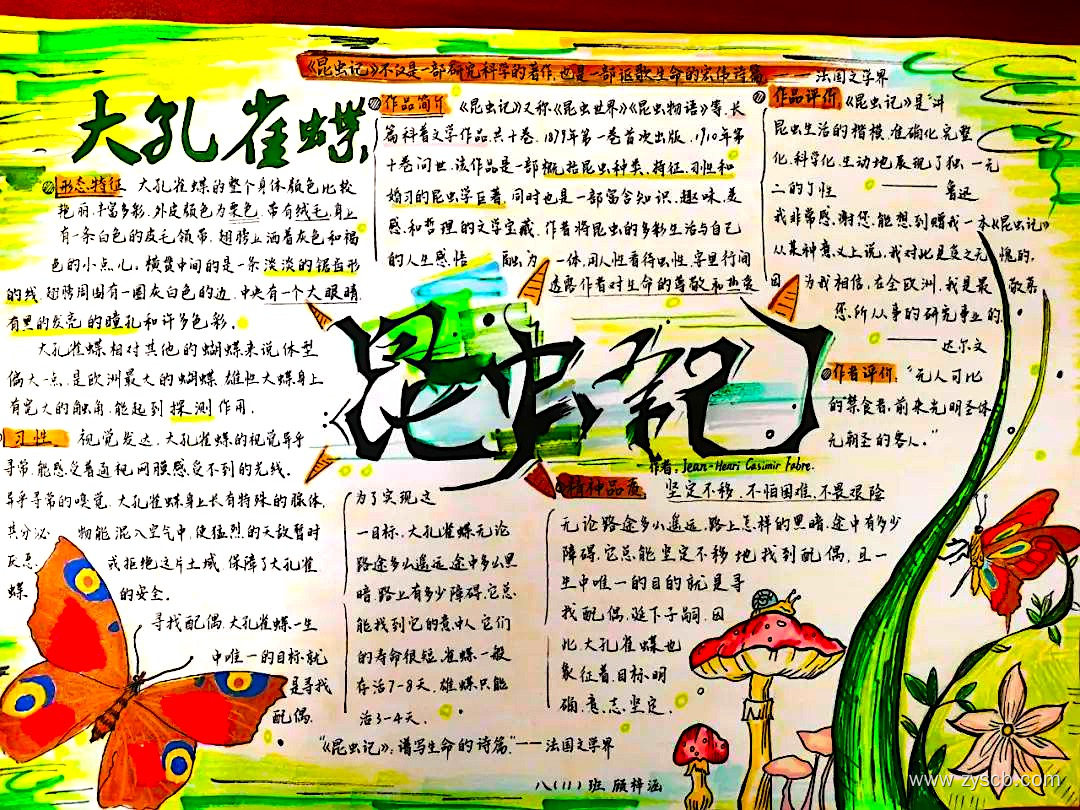 《昆虫记》不仅是一部研究科学的著作,也是一部讴歌生命的宏伟诗篇
——法国文学界
大孔雀蝶
形态特征 大孔雀蝶的整个身体颜色比较
艳丽,丰富多彩.外皮颜色为栗色.带有绒毛,身上
有一条白色的皮毛领带.翅膀上洒着灰色和褐
色的小点儿.横贯中间的是一条淡淡的锯齿形
的线.翅膀周围有一圈灰白色的边.中央有一个大眼睛
有黑的发亮的瞳孔和许多色彩.
大孔雀蝶相对其他的蝴蝶来说体型
偏大一点.是欧洲最大的蝴蝶.雄性大蝶身上
有宽大的触角.能起到探测作用.
习性 视觉发达.大孔雀蝶的视觉异乎
寻常,能感受普通视网膜感受不到的光线.
异乎寻常的嗅觉.大孔雀蝶身上长有特殊的腺体,
其分泌 物能混入空气中,使猛烈的天敌暂时
厌恶 或拒绝这片土域.保障了大孔雀
蝶 的安全。
寻找配偶.大孔雀蝶一生
中唯一的目标就
是寻找
配偶.
作品简介 《昆虫记》又称《昆虫世界》《昆虫物语》等.长
篇科普文学作品,共十卷.1879年第一卷首次出版.1910年第
十卷问世.该作品是一部概括昆虫种类.特征.习性和
婚习的昆虫学巨著,同时也是一部富含知识.趣味.美
感.和哲理的文学宝藏.作者将昆虫的多彩生活与自己
的人生感悟 融为 一体,用人性看待虫性.字里行间
透露作者对生命的尊敬和热爱
作品评价 《昆虫记》是“讲
昆虫生活的楷模.准确化.完整
化.科学化.生动地展现了独一无
二的个性 ——鲁迅
我非常感谢您,能想到赠我一本《昆虫记》
从某种意义上说,我对此是受之无 愧的,
因 为我相信,在全欧洲,我是最 敬慕
您所从事的研究事业的.
——达尔文
昆虫记
作者:Jean-Henri Casimir Fabre.
作者评价.“无人可比
的禁食者,前来光明圣体
无朝圣的客人.”
精神品质 坚定不移.不怕困难.不畏艰险
无论路途多么遥远,路上怎样的黑暗.途中有多少
障碍,它总能坚定不移地找到配偶,且一
生中唯一的目的就是寻
找配偶,延下子嗣.因
此大孔雀蝶也
象征着目标明
确,意志坚定.
为了实现这
一目标.大孔雀蝶无论
路途多么遥远,途中多么黑
暗.路上有多少障碍,它总
能找到它的意中人,它们
的寿命很短.雀蝶一般
存活7-8天.雄蝶只能
活3-4天.
“《昆虫记》,谱写生命的诗篇.”——法国文学界
八(11)班 顾梓涵
www.zyscb.com